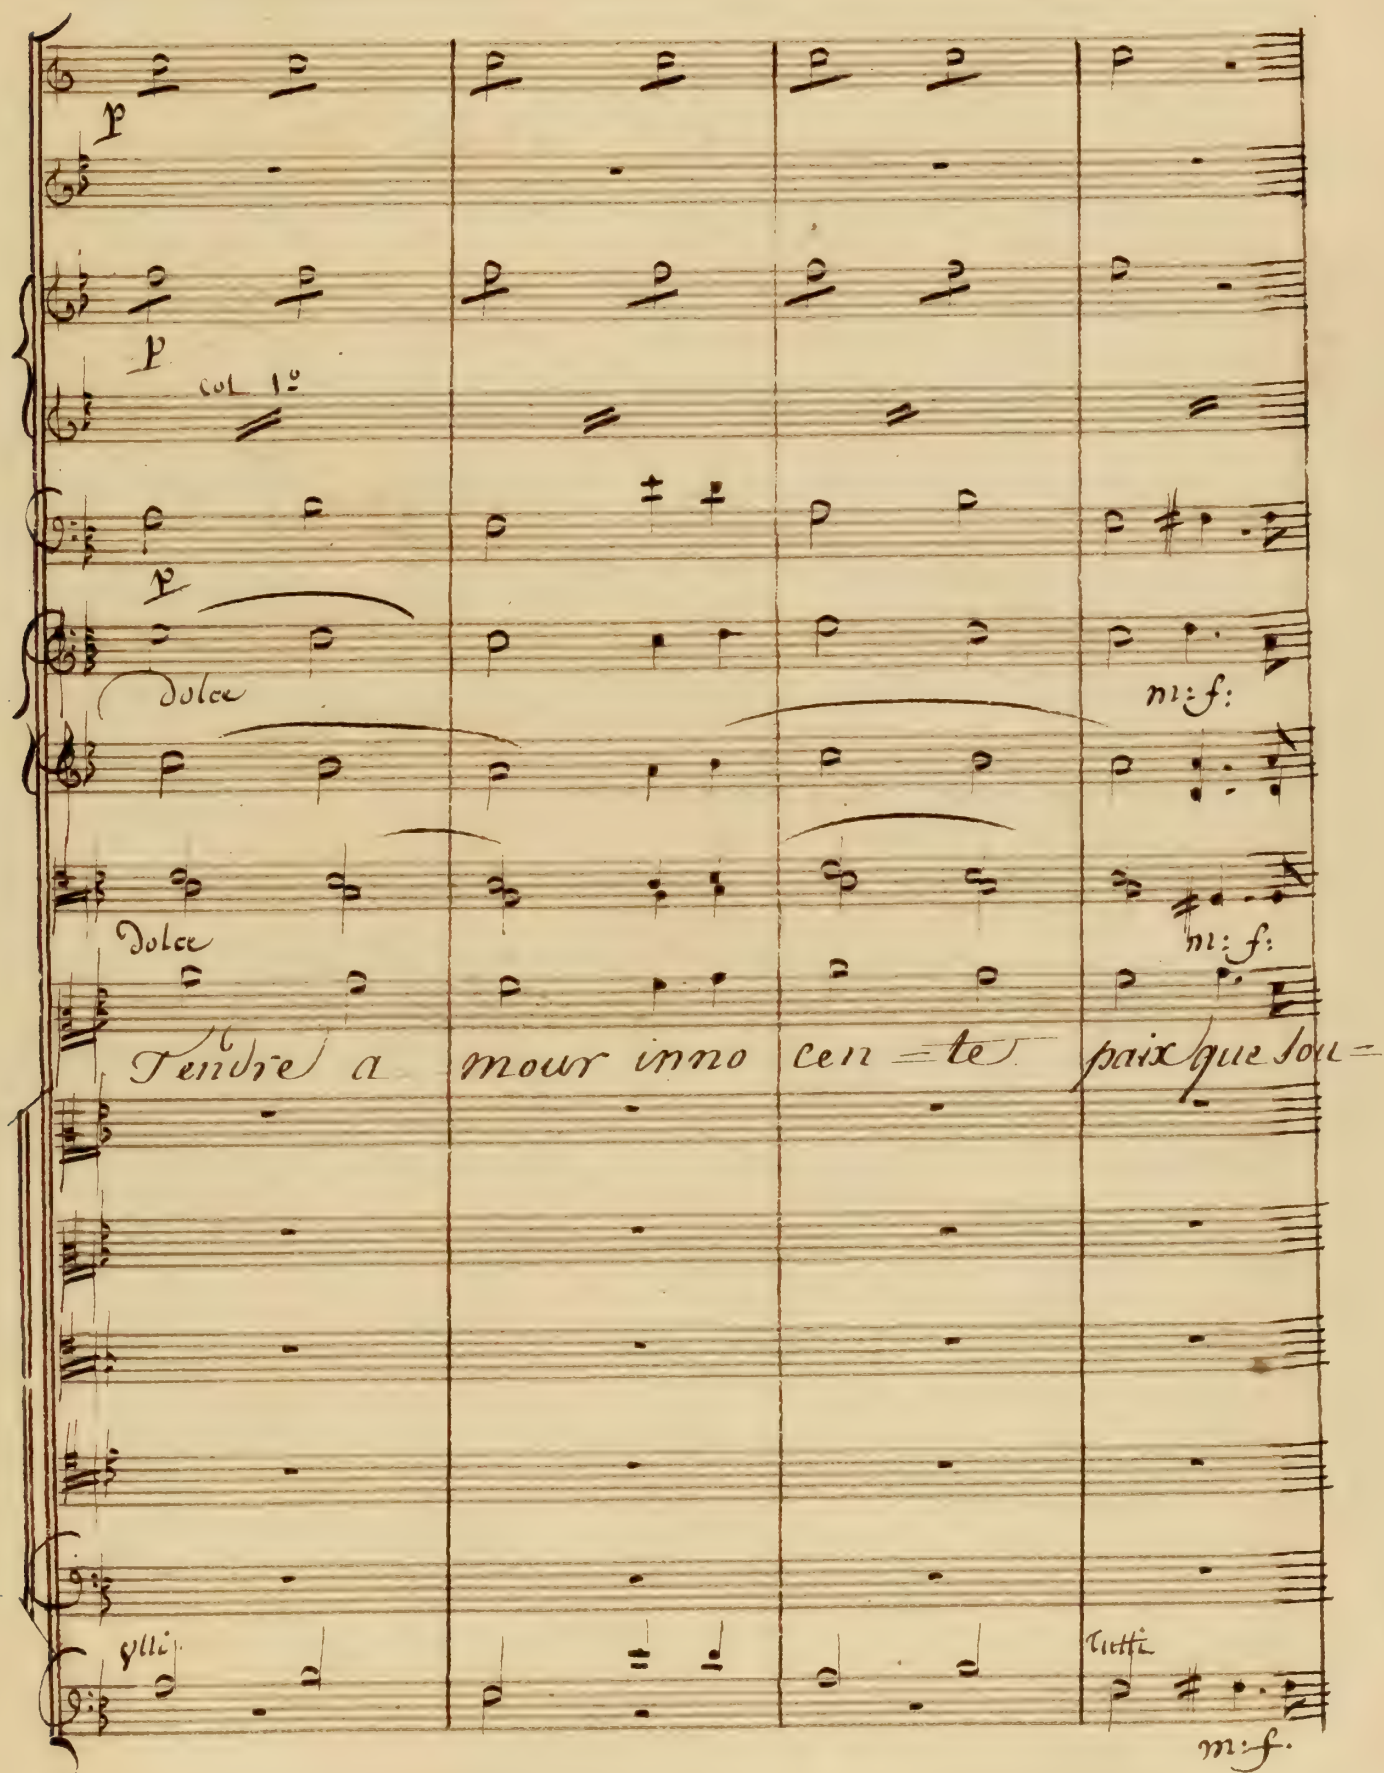 p
p
col 1º
p
dolce
m: f:
dolce
m: f:
Tendre a mour inno cen = te paix que sou =
vlli
Tutti
m: f.